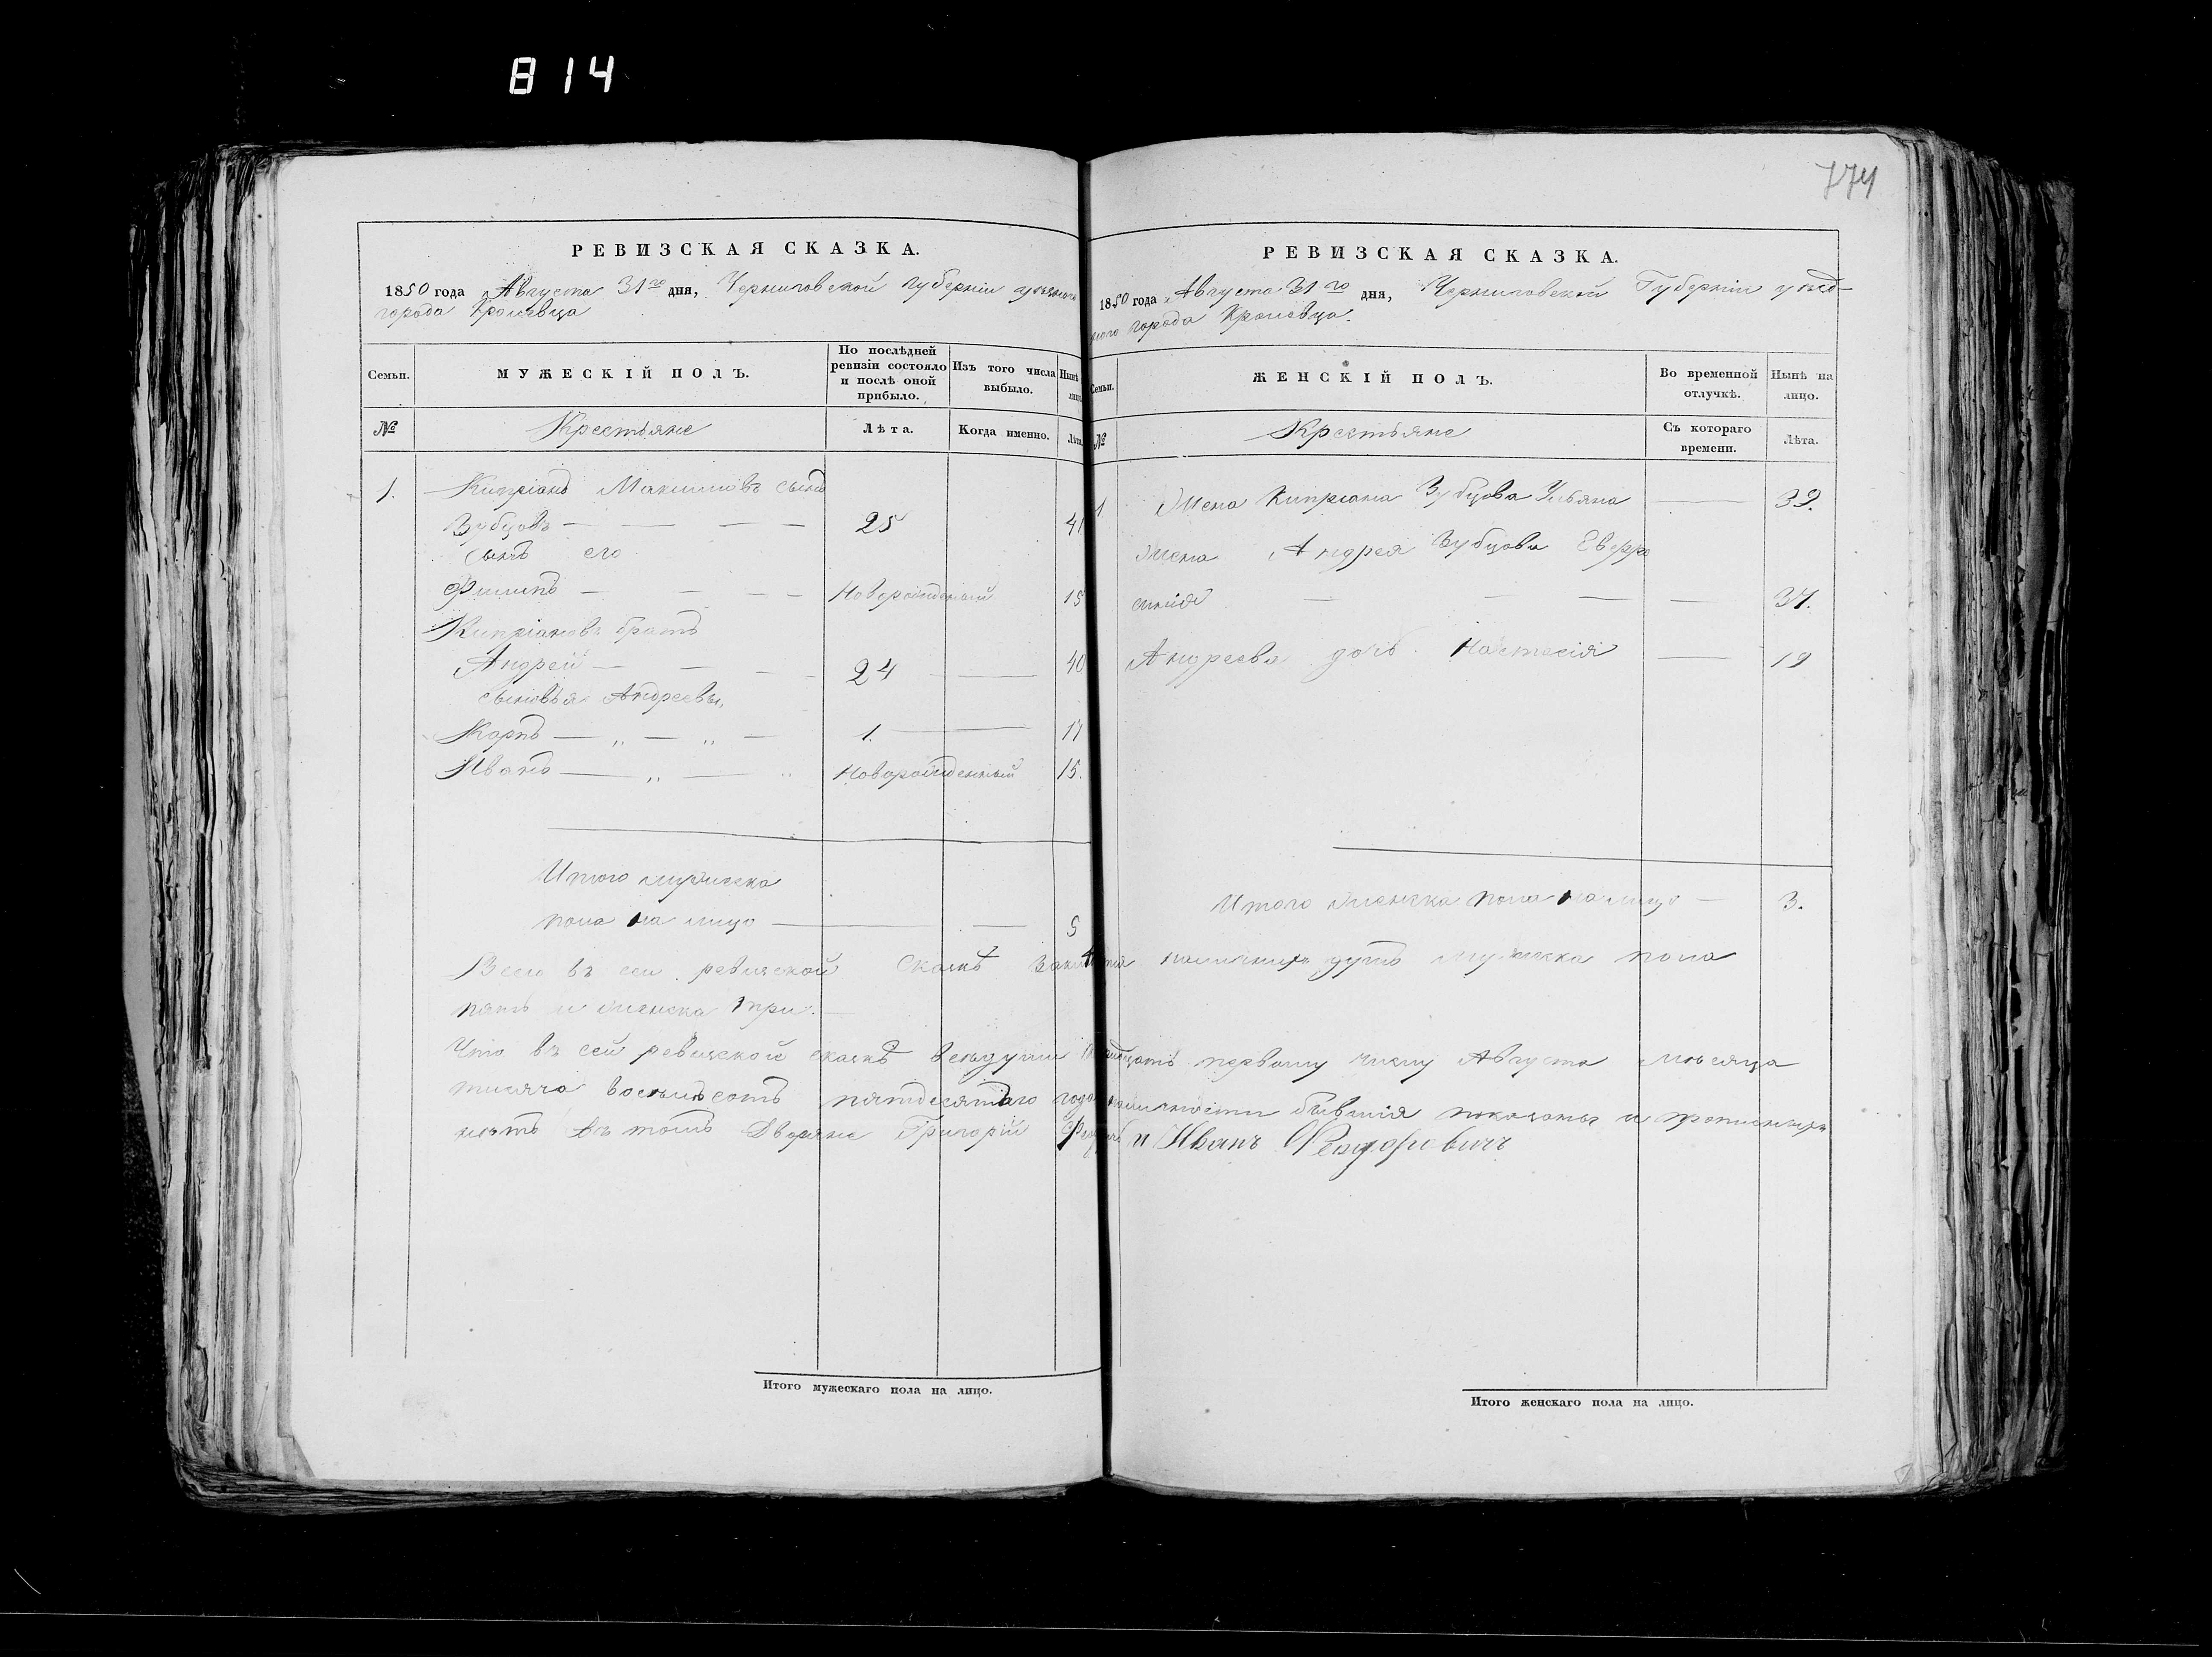 814
774
РЕВИЗСКАЯ СКАЗКА.
1850 года Августа 31го дня, Черниговской губерніи уезнаго
города Кролевца
Семьи.
МУЖЕСКІЙ ПОЛЪ.
По послѣдней ревизіи состояло и послѣ оной прибыло.
Изъ того числа выбыло.
Нынѣ лицо
№
Крестьяне
Лѣта.
Когда именно.
Лѣта
1. Кипріанъ Максимовъ сынъ
Зубцовъ — — — — 25 41
сынъ его
Филипъ — — — — Новорожденый 15
Кипріановъ братъ
Андрей — — — — 24 — 40
сыновья Андреевы,
Карпъ — „ — „ — 1. — — 17
Иванъ — „ — „ Новорожденный 15.
Итого мужеска
пола на лицо — — 5
РЕВИЗСКАЯ СКАЗКА.
1850 года Августа 31го дня, Черниговской Губерніи уезд-
ного города Кролевца.
Семьи.
ЖЕНСКІЙ ПОЛЪ.
Во временной отлучкѣ.
Нынѣ на лицо.
№
Крестьяне
Съ котораго времени.
Лѣта.
1 Жена Кипріана Зубцова Ульяна — 39.
Жена Андрея Зубцова Евфро
синія — — — — 37.
Андреева дочь Настасія — 19
Итого женска пола налицо — 3.
Всего въ сей ревизской сказкѣ наличныхъ душъ мужеска пола
пять и женска три. —
Что въ сей ревизской сказкѣ всѣ души тридцать первому числу Августа месяца
тисяча восемьсотъ пятдесятаго года налицности бывшія показаны и прописныхъ
нѣтъ въ томъ Дворяне Григорій и Иванъ Феодоровичъ
Итого мужескаго пола на лицо.
Итого женскаго пола на лицо.